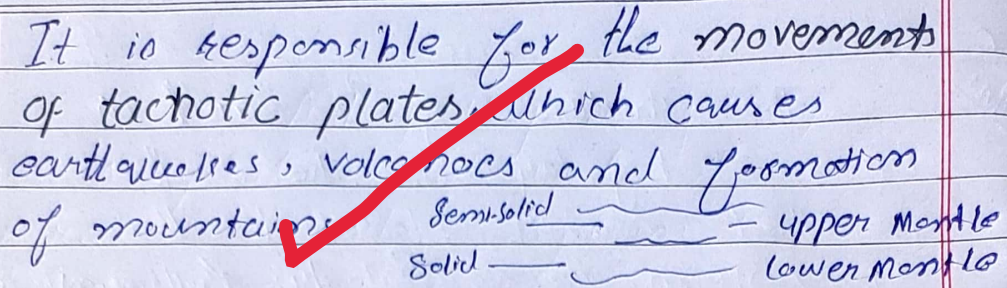 It is responsible for the movements
of tachotic plates, which causes
earthquakes, volcanoes and formation
of mountains
Semi-solid upper Mantle
Solid lower Mantle